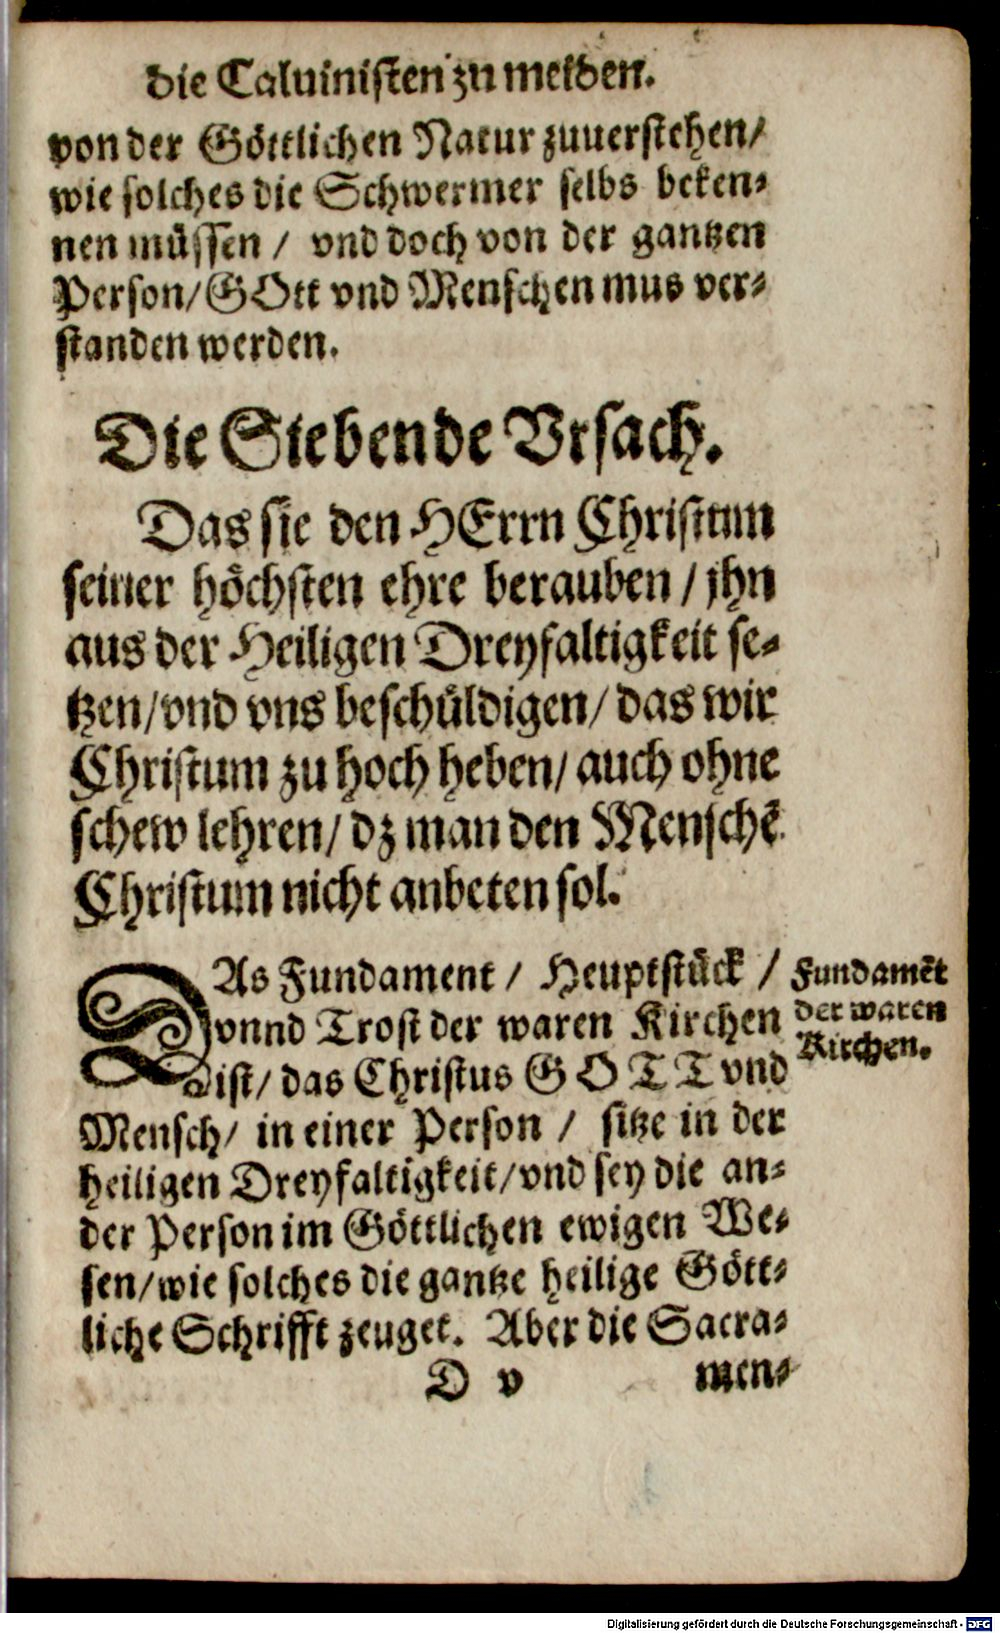 die Caluinisten zu meiden.
von der Göttlichen Natur zuuerstehen/
wie solches die Schwermer selbs beken-
nen müssen / vnd doch von der gantzen
Person/ GOtt vnd Menschen mus ver-
standen werden.
Die Siebende Vrsach.
Das sie den HErrn Christum
seiner höchsten ehre berauben / jhn
aus der Heiligen Dreyfaltigkeit se-
tzen/ vnd vns beschüldigen/ das wir
Christum zu hoch heben/ auch ohne
schew lehren/ dz man den Menschē
Christum nicht anbeten sol.
DAs Fundament / Heuptstück /
vnnd Trost der waren Kirchen
ist/ das Christus GOTT vnd
Mensch/ in einer Person / sitze in der
heiligen Dreyfaltigkeit/ vnd sey die an-
der Person im Göttlichen ewigen We-
sen/ wie solches die gantze heilige Gött-
liche Schrifft zeuget. Aber die Sacra-
D v men-
Fundamēt
der waren
Kirchen.
Digitalisierung gefördert durch die Deutsche Forschungsgemeinschaft - DFG